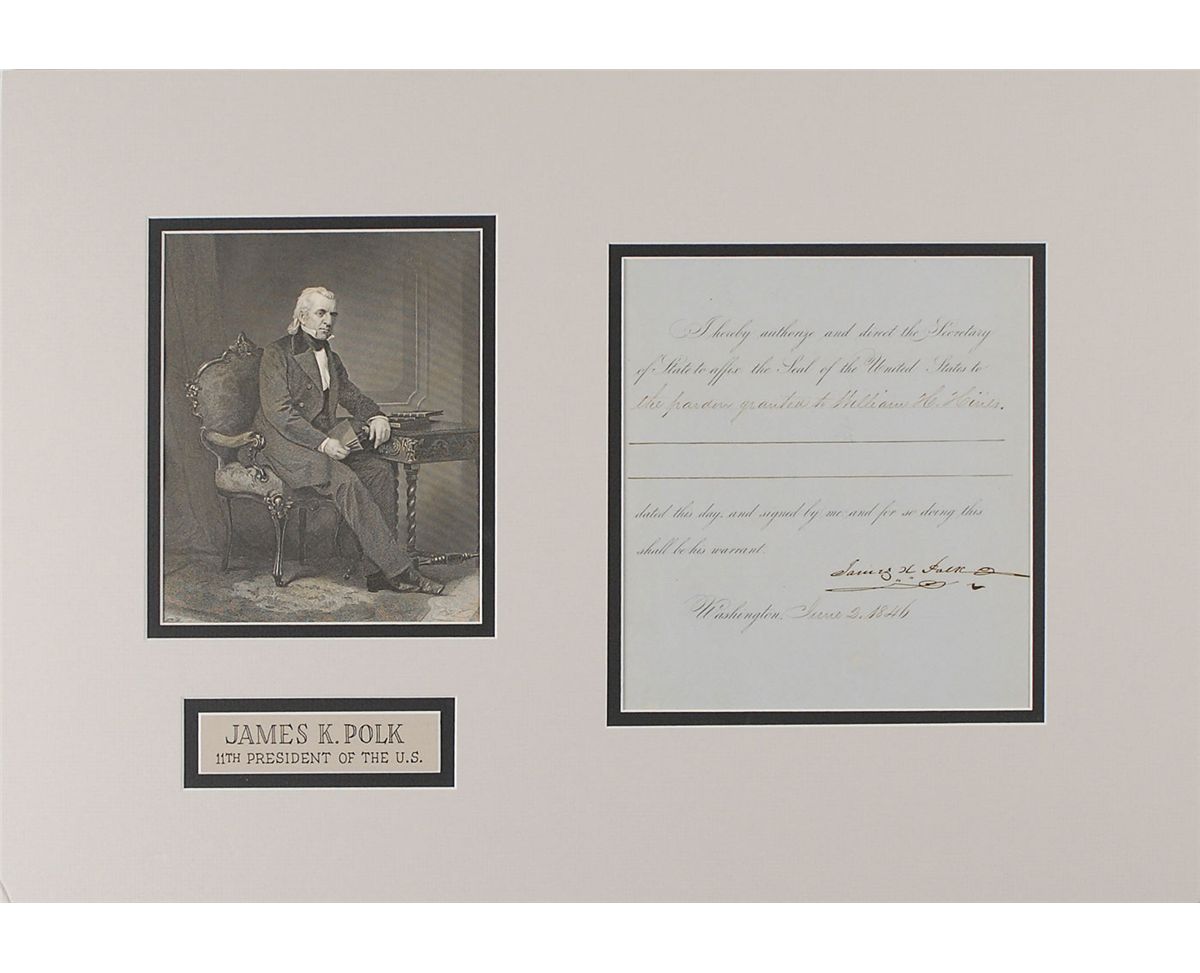 I hereby authorize and direct the Secretary
of State to affix the Seal of the United States to
the pardon granted to William H. Hines.
dated this day, and signed by me and for so doing this
shall be his warrant.
James K Polk
Washington, June 2. 1846
JAMES K. POLK
11TH PRESIDENT OF THE U.S.